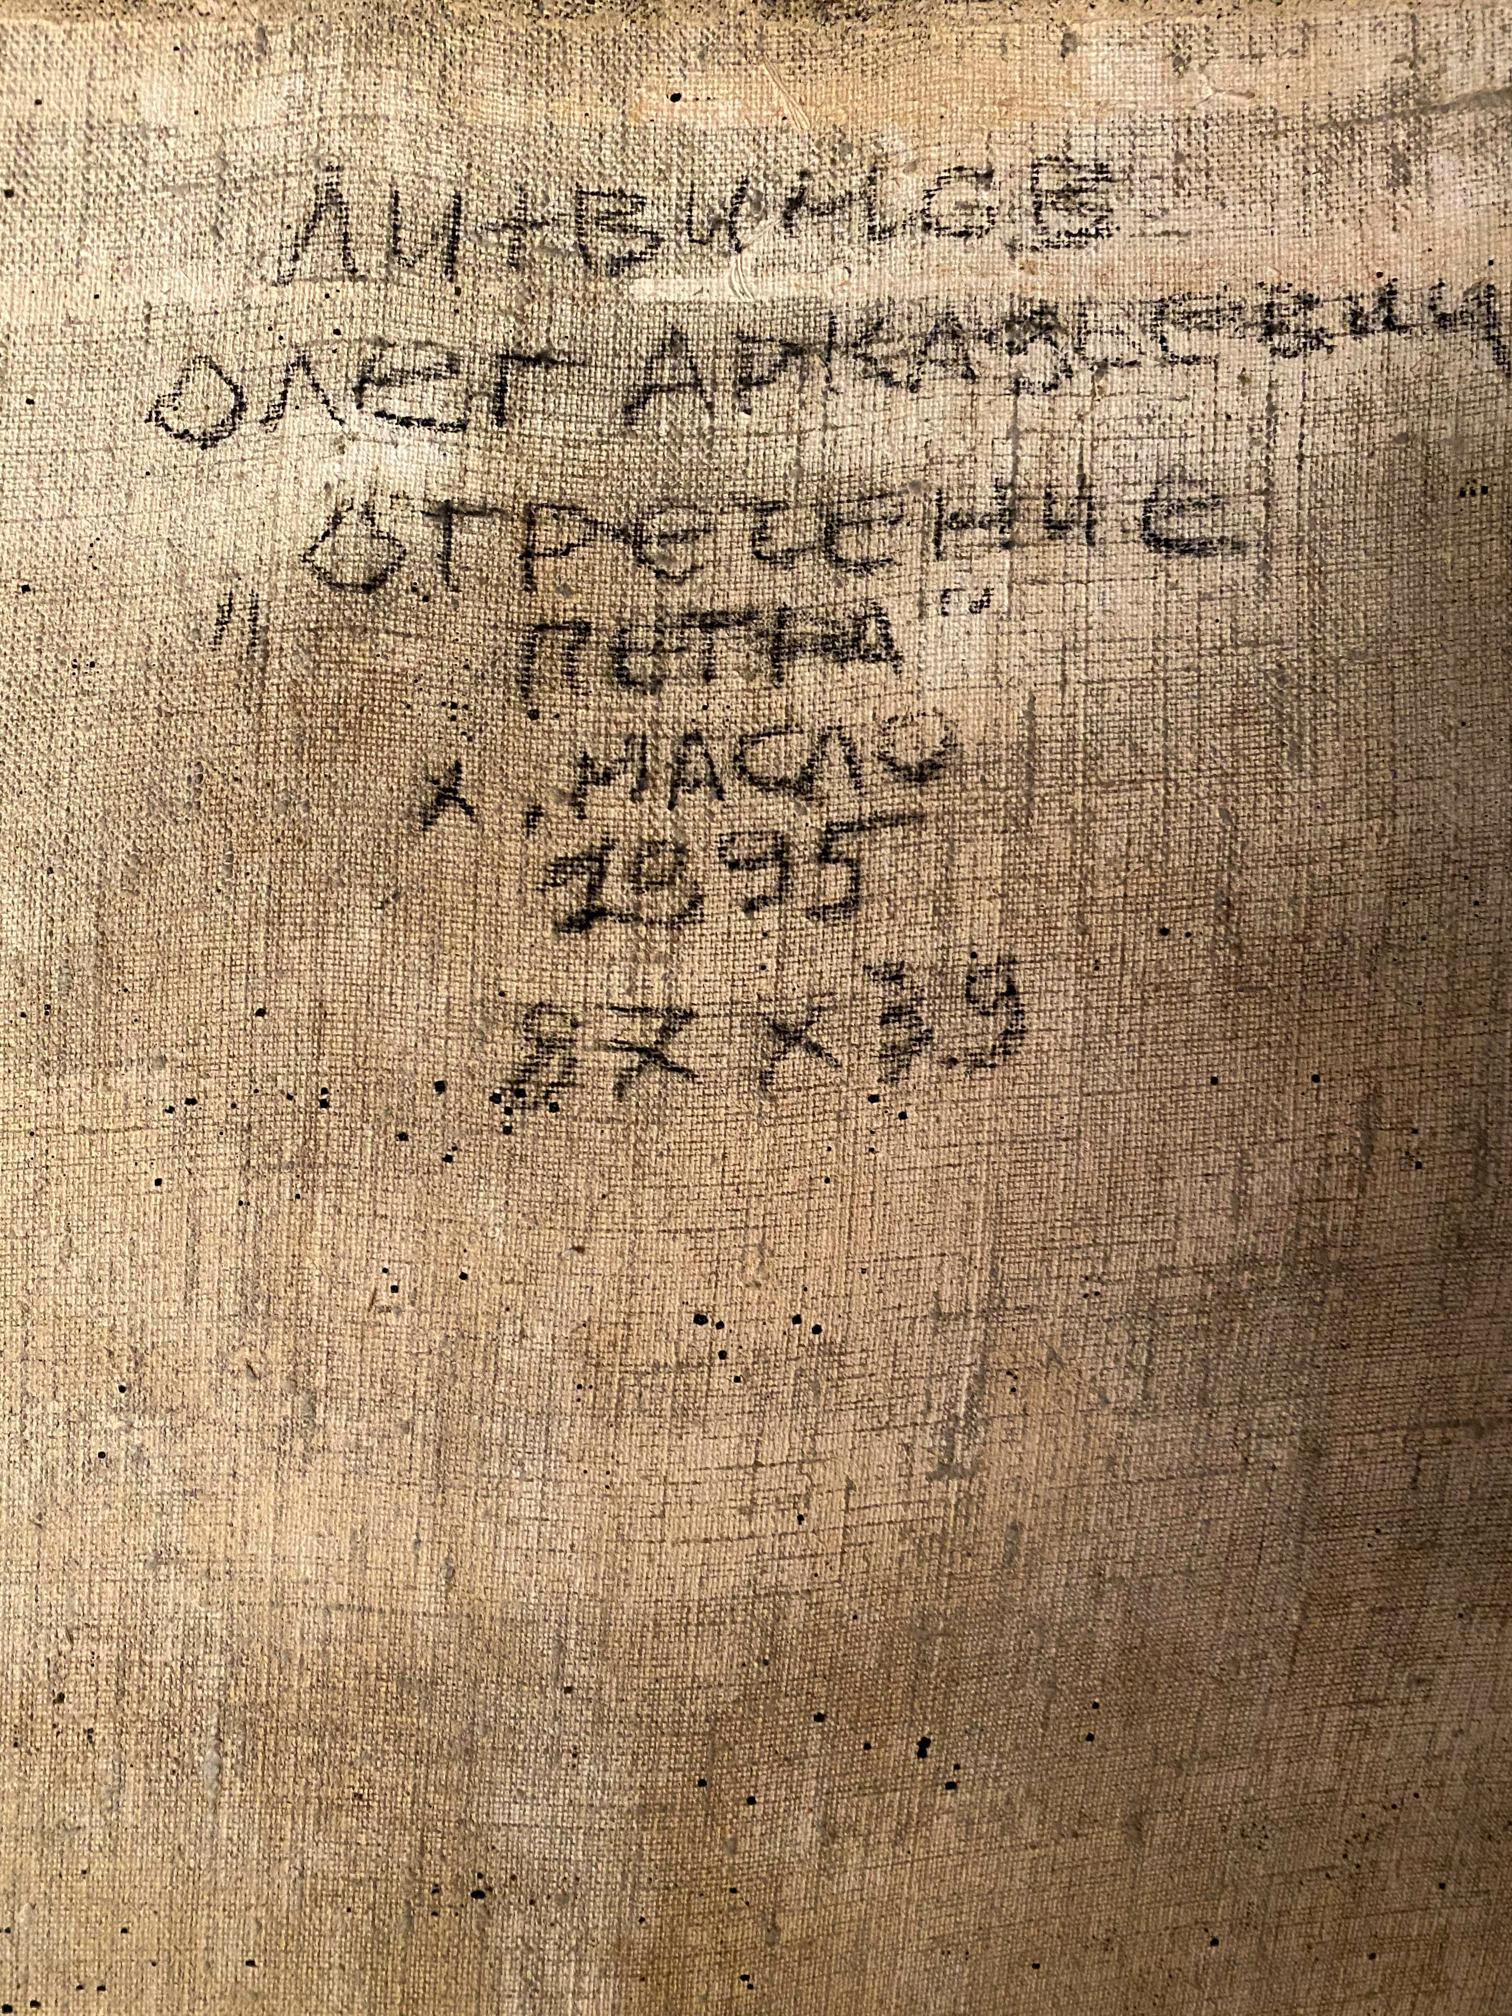 ЛИТВИНОВ
ОЛЕГ АРКАДЬЕВИЧ
ОТРЕЧЕНИЕ
"ПЕТРА"
Х. МАСЛО
1995
87 х 39